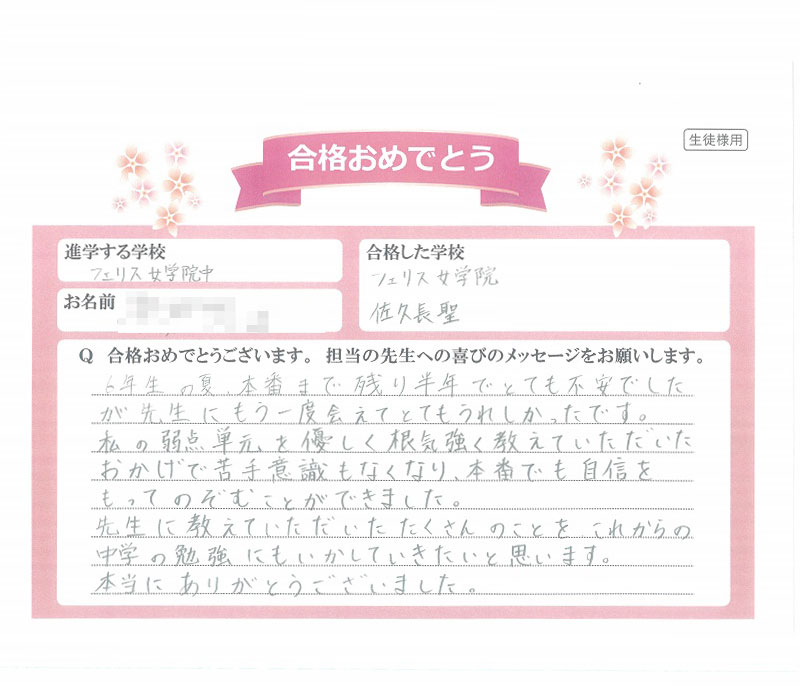 生徒様用
合格おめでとう
進学する学校
フェリス女学院中
お名前
合格した学校
フェリス女学院
佐久長聖
Q 合格おめでとうございます。担当の先生への喜びのメッセージをお願いします。
6年生の夏、本番まで残り半年でとても不安でした
が先生にもう一度会えてとてもうれしかったです。
私の弱点単元を優しく根気強く教えていただいた
おかげで苦手意識もなくなり、本番でも自信を
もってのぞむことができました。
先生に教えていただいたたくさんのことをこれからの
中学の勉強にもいかしていきたいと思います。
本当にありがとうございました。